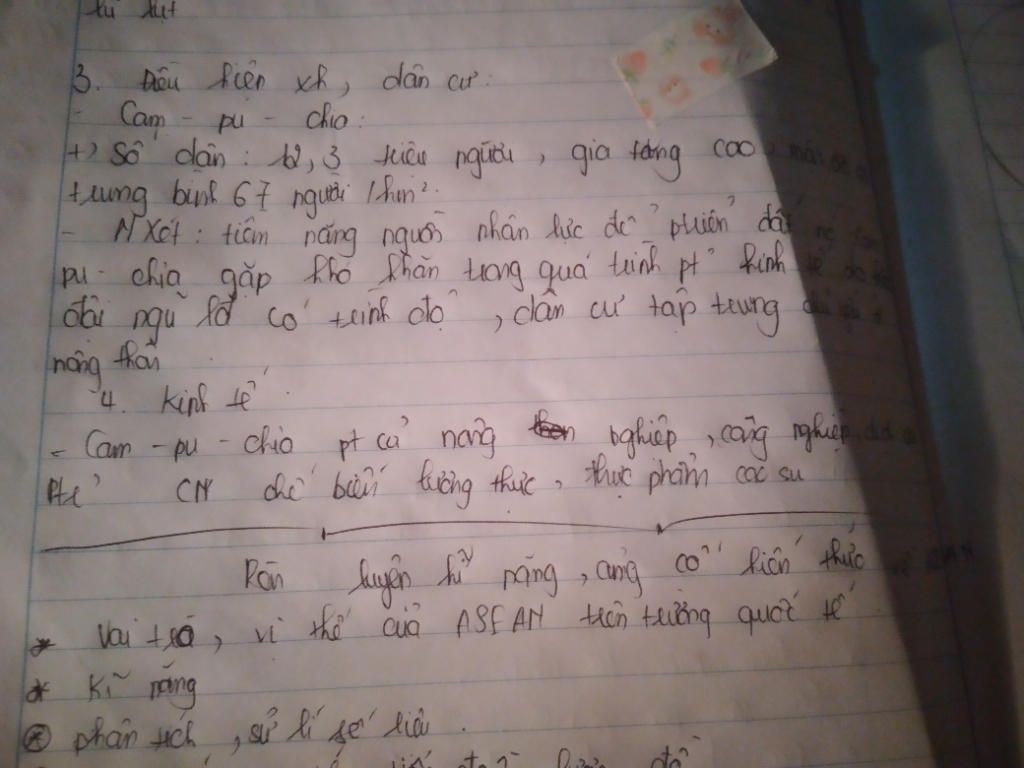 lũ lụt
3. Điều kiện xh, dân cư:
- Cam - pu - chia:
+) Số dân: 12,3 triệu người, gia tăng cao,
trung bình 67 người / km².
- NXét: tiềm năng nguồn nhân lực để phiển đất
pu - chia gặp khó khăn trong quá trình pt kinh tế
đội ngũ lđ có trình độ, dân cư tập trung
nông thôn
4. Kinh tế
- Cam - pu - chia pt cả nông nghiệp, công nghiệp,
Ptr CN chế biến lương thực, thực phẩm cao su
Rèn luyện kĩ năng, củng cố kiến thức
* Vai trò, vị thế của ASEAN trên trường quốc tế
* Kĩ năng
* phân tích, sử lí số liệu.